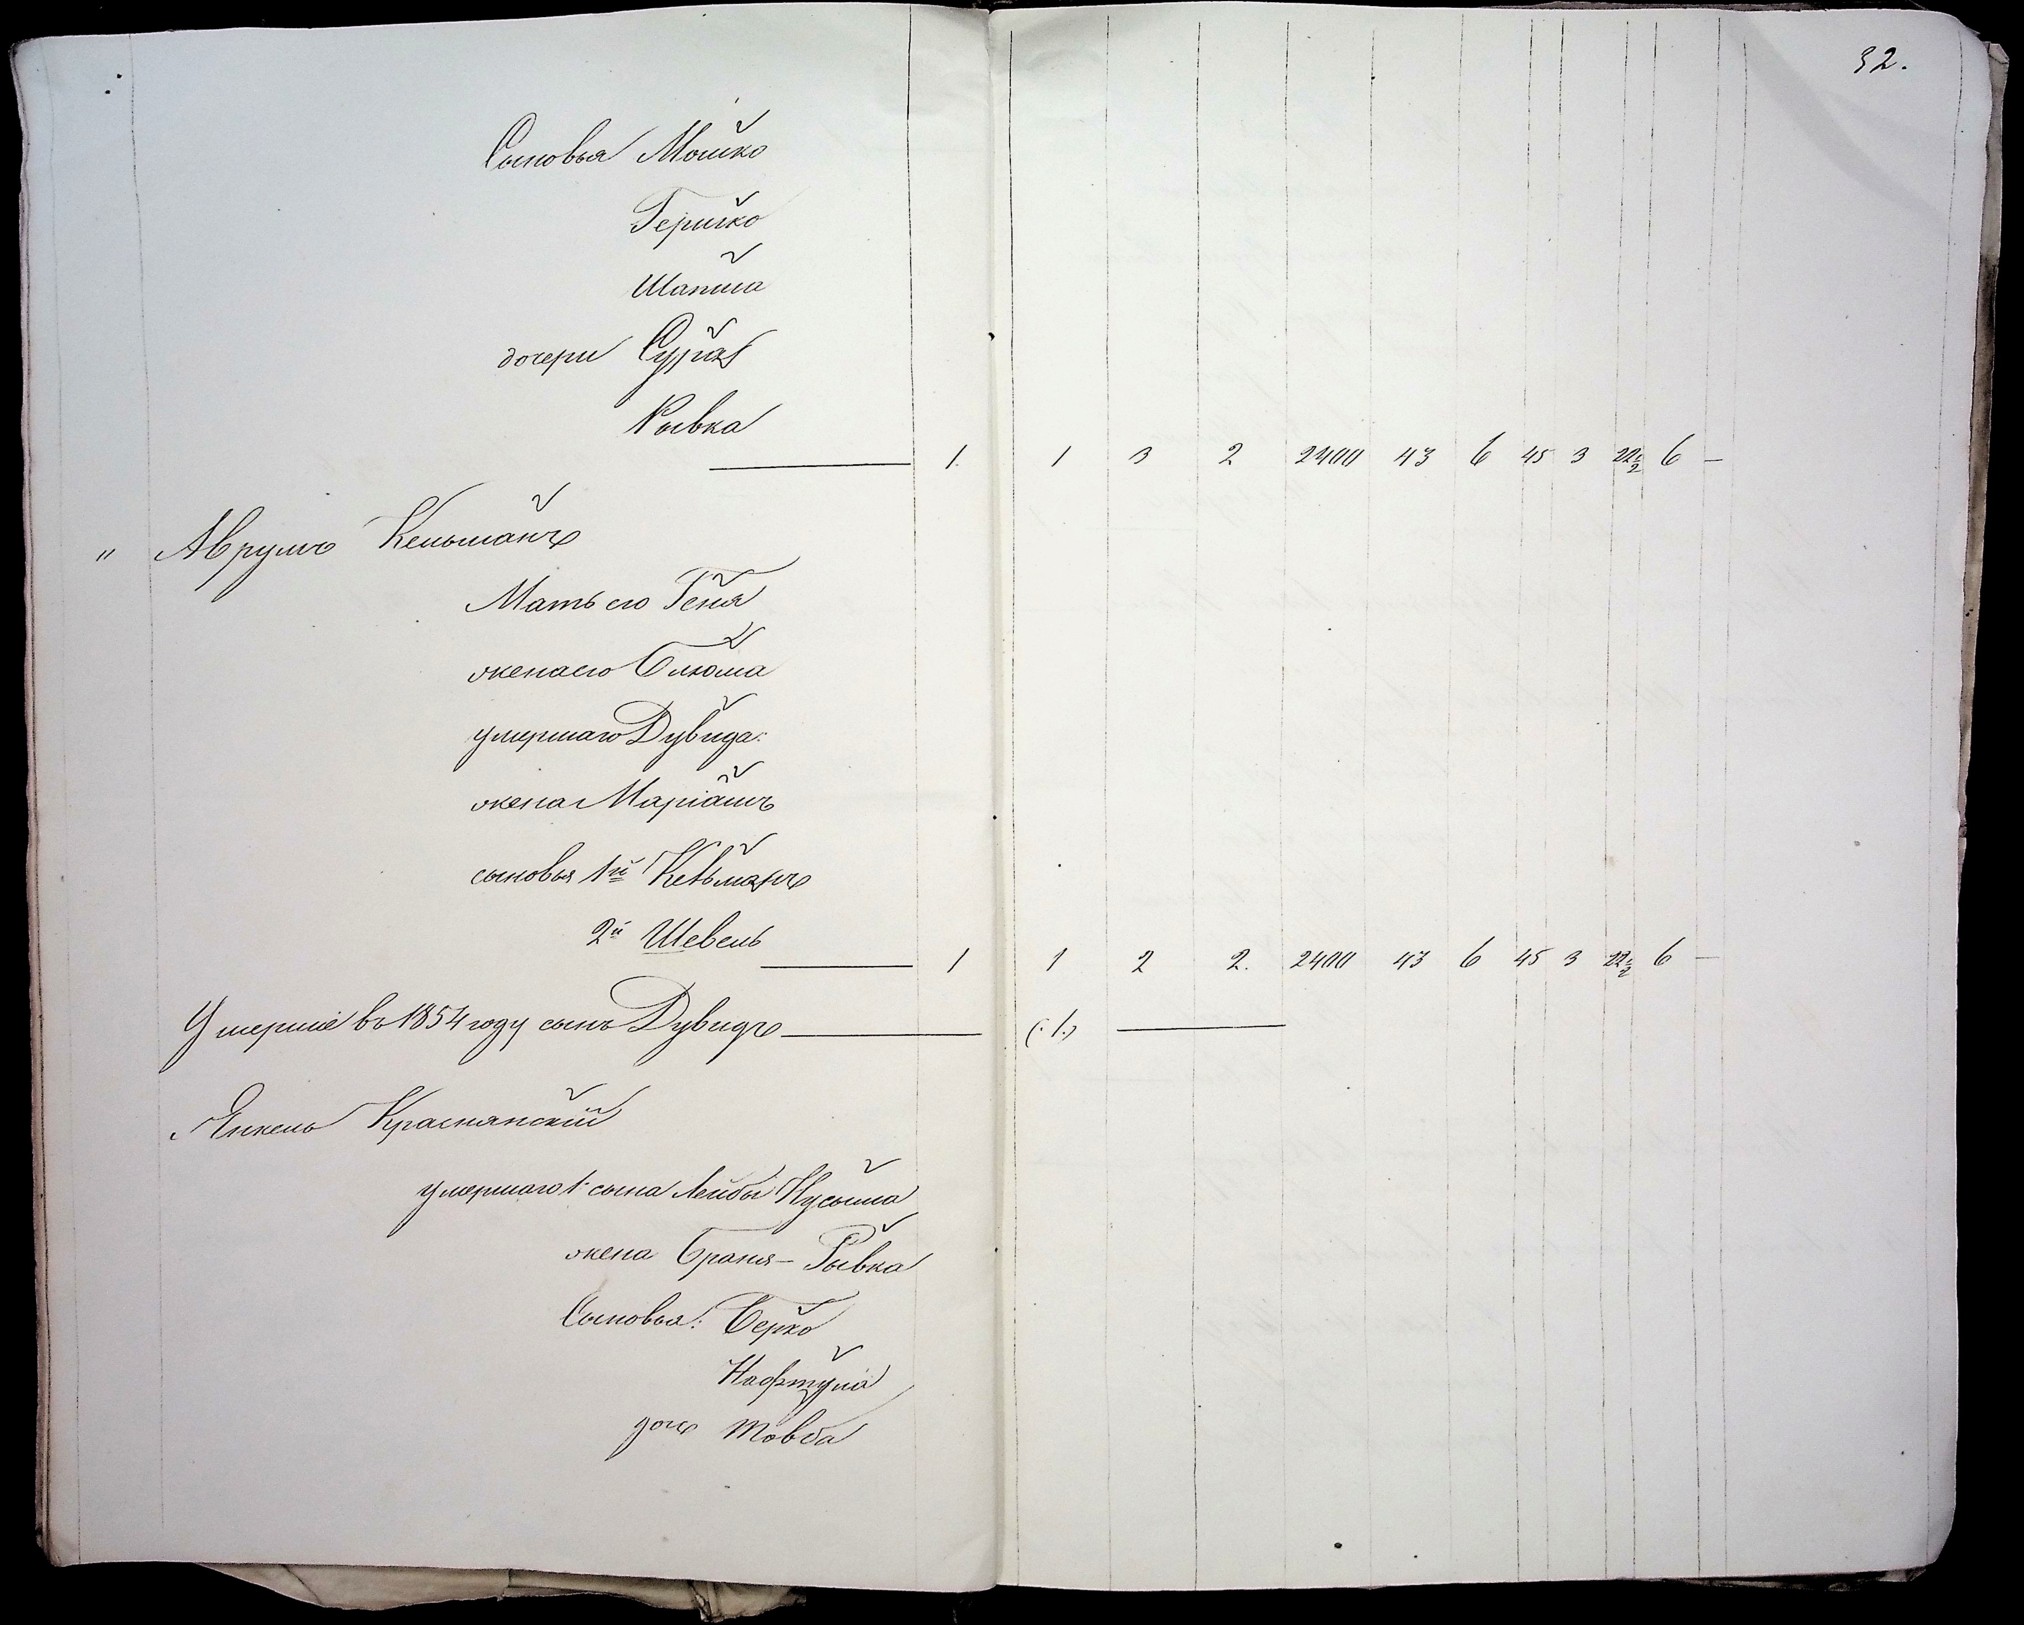 32.
Сыновья Мошко
Гершко
Шапша
дочери Сура
Рывка
1. 1 3 2 2400 43 6 45 3 22½ 6 —
" Аврумъ Кельманъ
Мать его Геня
жена его Блюма
умершаго Дувида:
жена Маріамъ
сыновья 1й Кельманъ
2й Шевель
1 1 2 2. 2400 43 6 45 3 22½ 6 —
Умершіе въ 1854 году сынъ Дувидъ (:1:)
Янкель Краснянскій
умершаго 1 сына Лейбы Нусыма
жена Браня - Рывка
Сыновья: Берко
Нафтула
дочь Товба